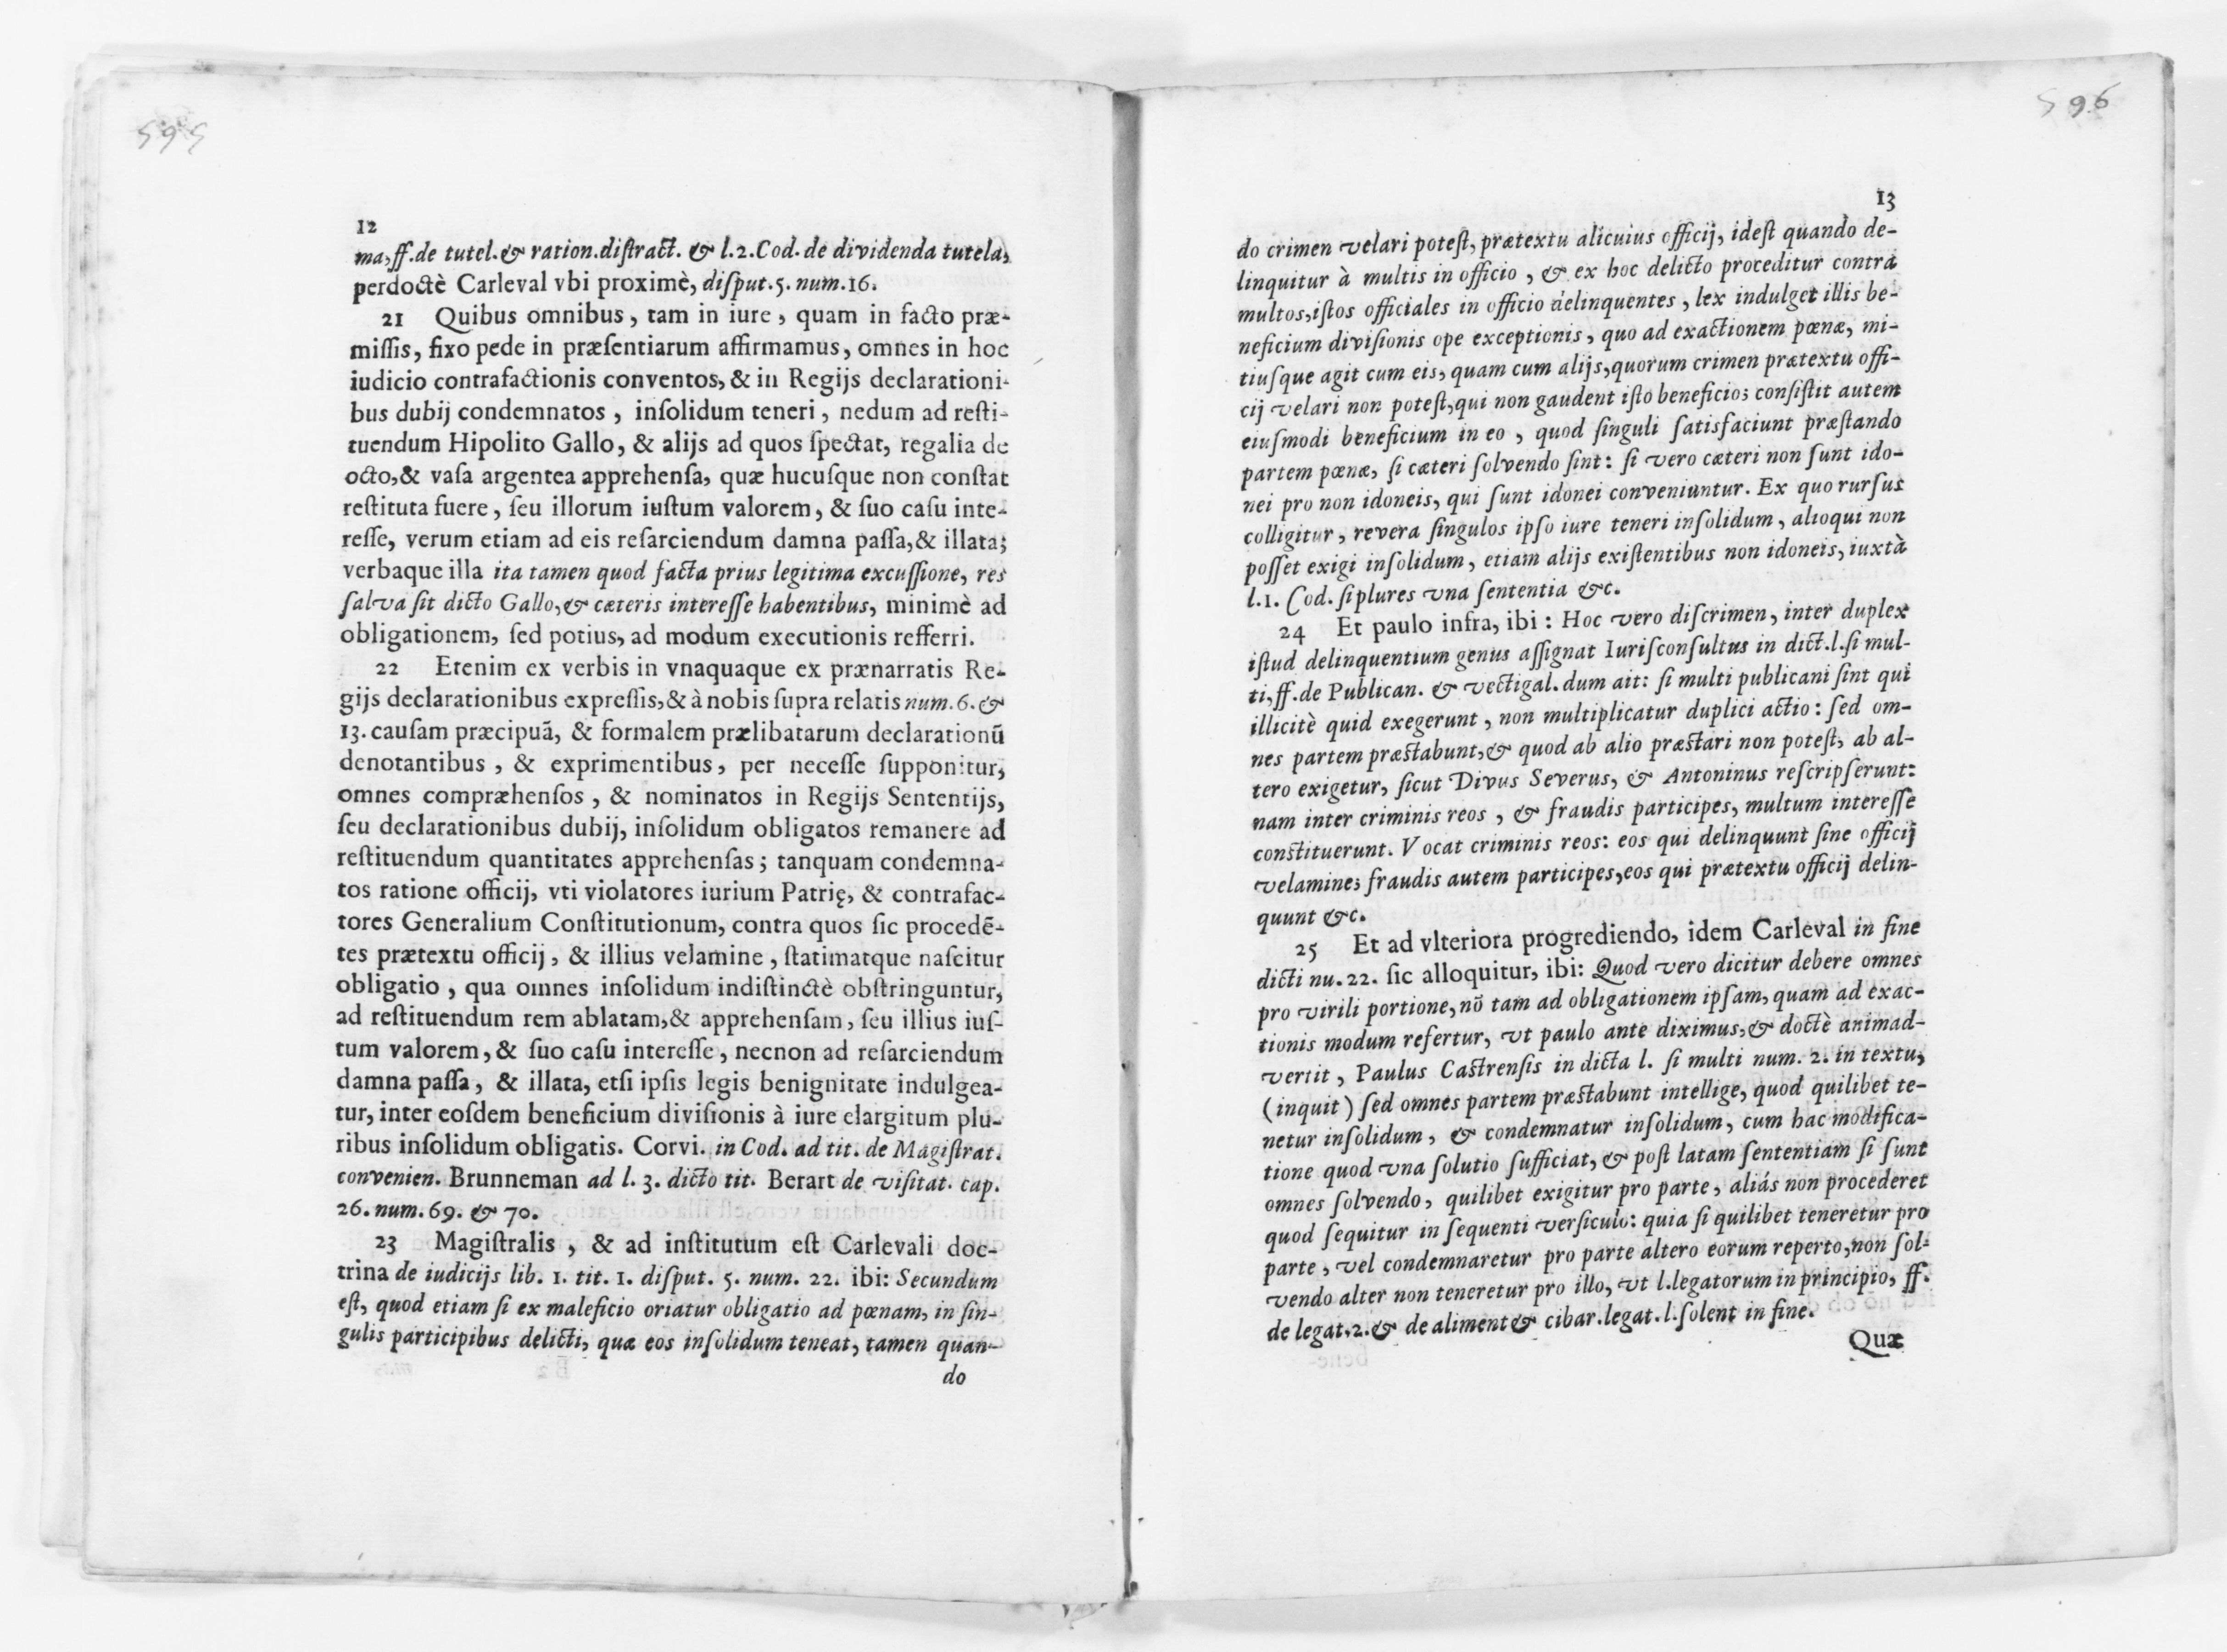 595
12
ma,ff.de tutel.& ration.diſtract. & l.2.Cod.de dividenda tutela,
perdoctè Carleval vbi proximè, diſput.5.num.16.
21 Quibus omnibus, tam in iure, quam in facto præ-
miſſis, fixo pede in præſentiarum affirmamus, omnes in hoc
iudicio contrafactionis conventos, & in Regijs declarationi-
bus dubij condemnatos, inſolidum teneri, nedum ad reſti-
tuendum Hipolito Gallo, & alijs ad quos ſpectat, regalia de
octo,& vaſa argentea apprehenſa, quæ hucuſque non conſtat
reſtituta fuere, ſeu illorum iuſtum valorem, & ſuo caſu inte-
reſſe, verum etiam ad eis reſarciendum damna paſſa,& illata;
verbaque illa ita tamen quod facta prius legitima excuſſione, res
ſalva ſit dicto Gallo,& cæteris intereſſe habentibus, minimè ad
obligationem, ſed potius, ad modum executionis refferri.
22 Etenim ex verbis in vnaquaque ex prænarratis Re-
gijs declarationibus expreſſis,& à nobis ſupra relatis num.6.&
13. cauſam præcipuã, & formalem prælibatarum declarationũ
denotantibus, & exprimentibus, per neceſſe ſupponitur,
omnes compræhenſos, & nominatos in Regijs Sententijs,
ſeu declarationibus dubij, inſolidum obligatos remanere ad
reſtituendum quantitates apprehenſas; tanquam condemna-
tos ratione officij, vti violatores iurium Patrię, & contrafac-
tores Generalium Conſtitutionum, contra quos ſic procedẽ-
tes prætextu officij, & illius velamine, ſtatimatque naſcitur
obligatio, qua omnes inſolidum indiſtinctè obſtringuntur,
ad reſtituendum rem ablatam,& apprehenſam, ſeu illius iuſ-
tum valorem,& ſuo caſu intereſſe, necnon ad reſarciendum
damna paſſa, & illata, etſi ipſis legis benignitate indulgea-
tur, inter eoſdem beneficium diviſionis à iure elargitum plu-
ribus inſolidum obligatis. Corvi. in Cod. ad tit. de Magiſtrat.
convenien. Brunneman ad l. 3. dicto tit. Berart de viſitat. cap.
26. num.69. & 70.
23 Magiſtralis, & ad inſtitutum eſt Carlevali doc-
trina de iudicijs lib. 1. tit. 1. diſput. 5. num. 22. ibi: Secundum
eſt, quod etiam ſi ex maleficio oriatur obligatio ad pœnam, in ſin-
gulis participibus delicti, quæ eos inſolidum teneat, tamen quan-
do
596
13
do crimen velari poteſt, prætextu alicuius officij, ideſt quando de-
linquitur à multis in officio, & ex hoc delicto proceditur contra
multos,iſtos officiales in officio delinquentes, lex indulget illis be-
neficium diviſionis ope exceptionis, quo ad exactionem pœnæ, mi-
tiuſque agit cum eis, quam cum alijs,quorum crimen prætextu offi-
cij velari non poteſt,qui non gaudent iſto beneficio; conſiſtit autem
eiuſmodi beneficium in eo, quod ſinguli ſatisfaciunt præſtando
partem pœnæ, ſi cæteri ſolvendo ſint: ſi vero cæteri non ſunt ido-
nei pro non idoneis, qui ſunt idonei conveniuntur. Ex quo rurſus
colligitur, revera ſingulos ipſo iure teneri inſolidum, alioqui non
poſſet exigi inſolidum, etiam alijs exiſtentibus non idoneis, iuxtà
l.1. Cod. ſi plures vna ſententia &c.
24 Et paulo infra, ibi: Hoc vero diſcrimen, inter duplex
iſtud delinquentium genus aſſignat Iuriſconſultus in dict.l.ſi mul-
ti,ff.de Publican. & vectigal.dum ait: ſi multi publicani ſint qui
illicitè quid exegerunt, non multiplicatur duplici actio: ſed om-
nes partem præſtabunt,& quod ab alio præſtari non poteſt, ab al-
tero exigetur, ſicut Divus Severus, & Antoninus reſcripſerunt:
nam inter criminis reos, & fraudis participes, multum intereſſe
conſtituerunt. Vocat criminis reos: eos qui delinquunt ſine officij
velamine; fraudis autem participes,eos qui prætextu officij delin-
quunt &c.
25 Et ad vlteriora progrediendo, idem Carleval in fine
dicti nu.22. ſic alloquitur, ibi: Quod vero dicitur debere omnes
pro virili portione,nõ tam ad obligationem ipſam, quam ad exac-
tionis modum refertur, vt paulo ante diximus,& doctè animad-
vertit, Paulus Caſtrenſis in dicta l. ſi multi num. 2. in textu,
(inquit) ſed omnes partem præſtabunt intellige, quod quilibet te-
netur inſolidum, & condemnatur inſolidum, cum hac modifica-
tione quod vna ſolutio ſufficiat, & poſt latam ſententiam ſi ſunt
omnes ſolvendo, quilibet exigitur pro parte, aliás non procederet
quod ſequitur in ſequenti verſiculo: quia ſi quilibet teneretur pro
parte, vel condemnaretur pro parte altero eorum reperto,non ſol-
vendo alter non teneretur pro illo, vt l.legatorum in principio, ff.
de legat.2.& de aliment& cibar.legat.l.ſolent in fine.
Quæ